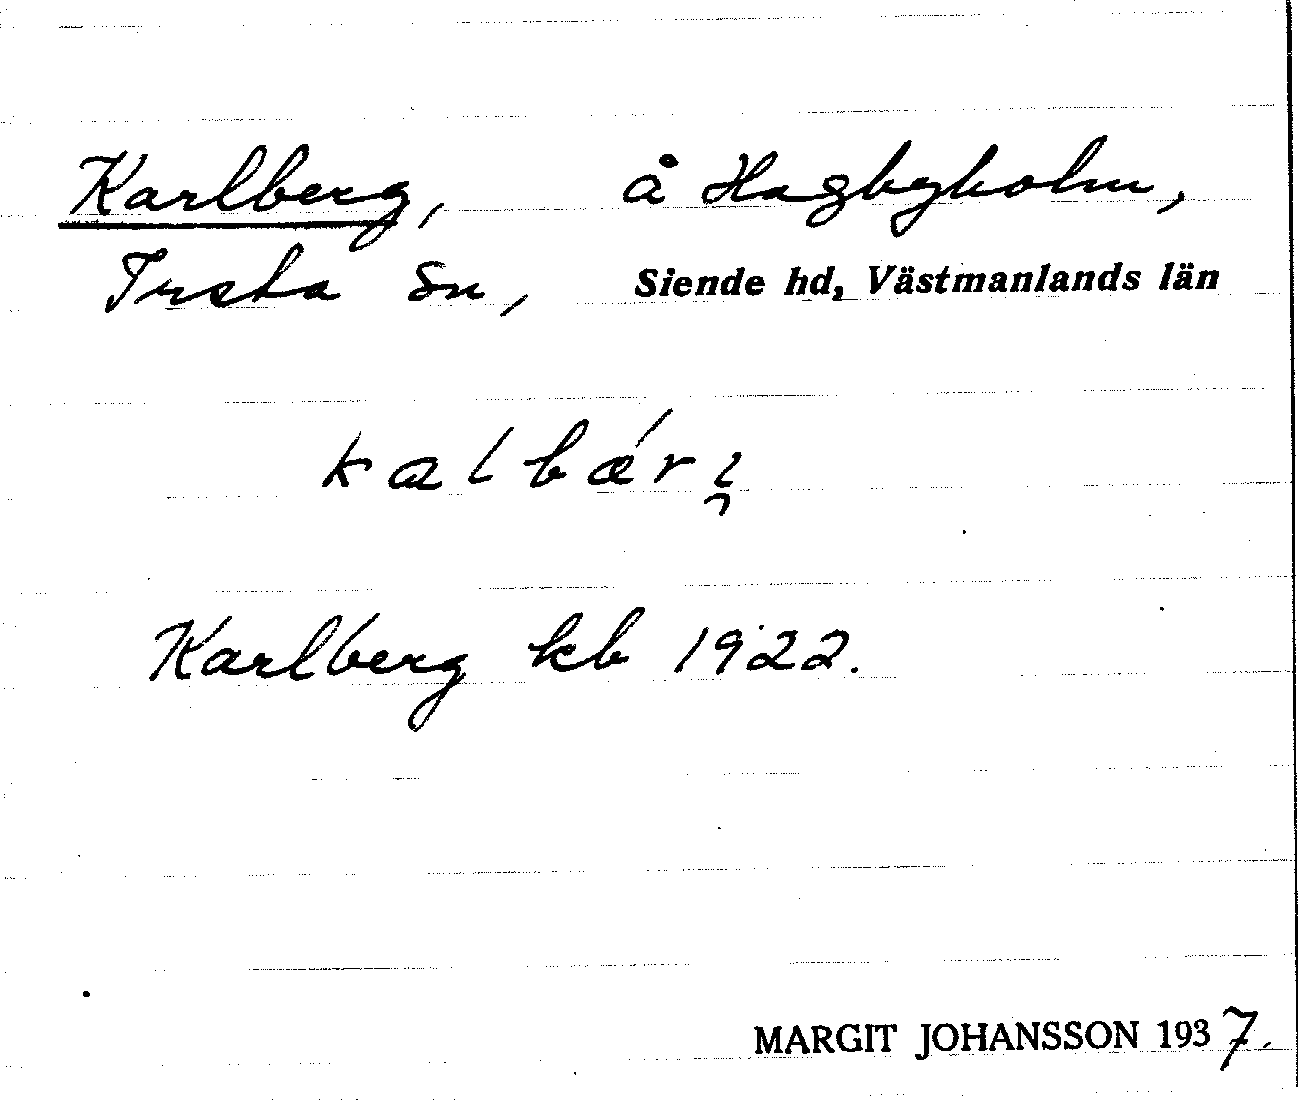 Karlberg, å Hagbyholm,
Irsta sn, Siende hd, Västmanlands län
kalbǽr
Karlberg kb 1922.
MARGIT JOHANSSON 1937.